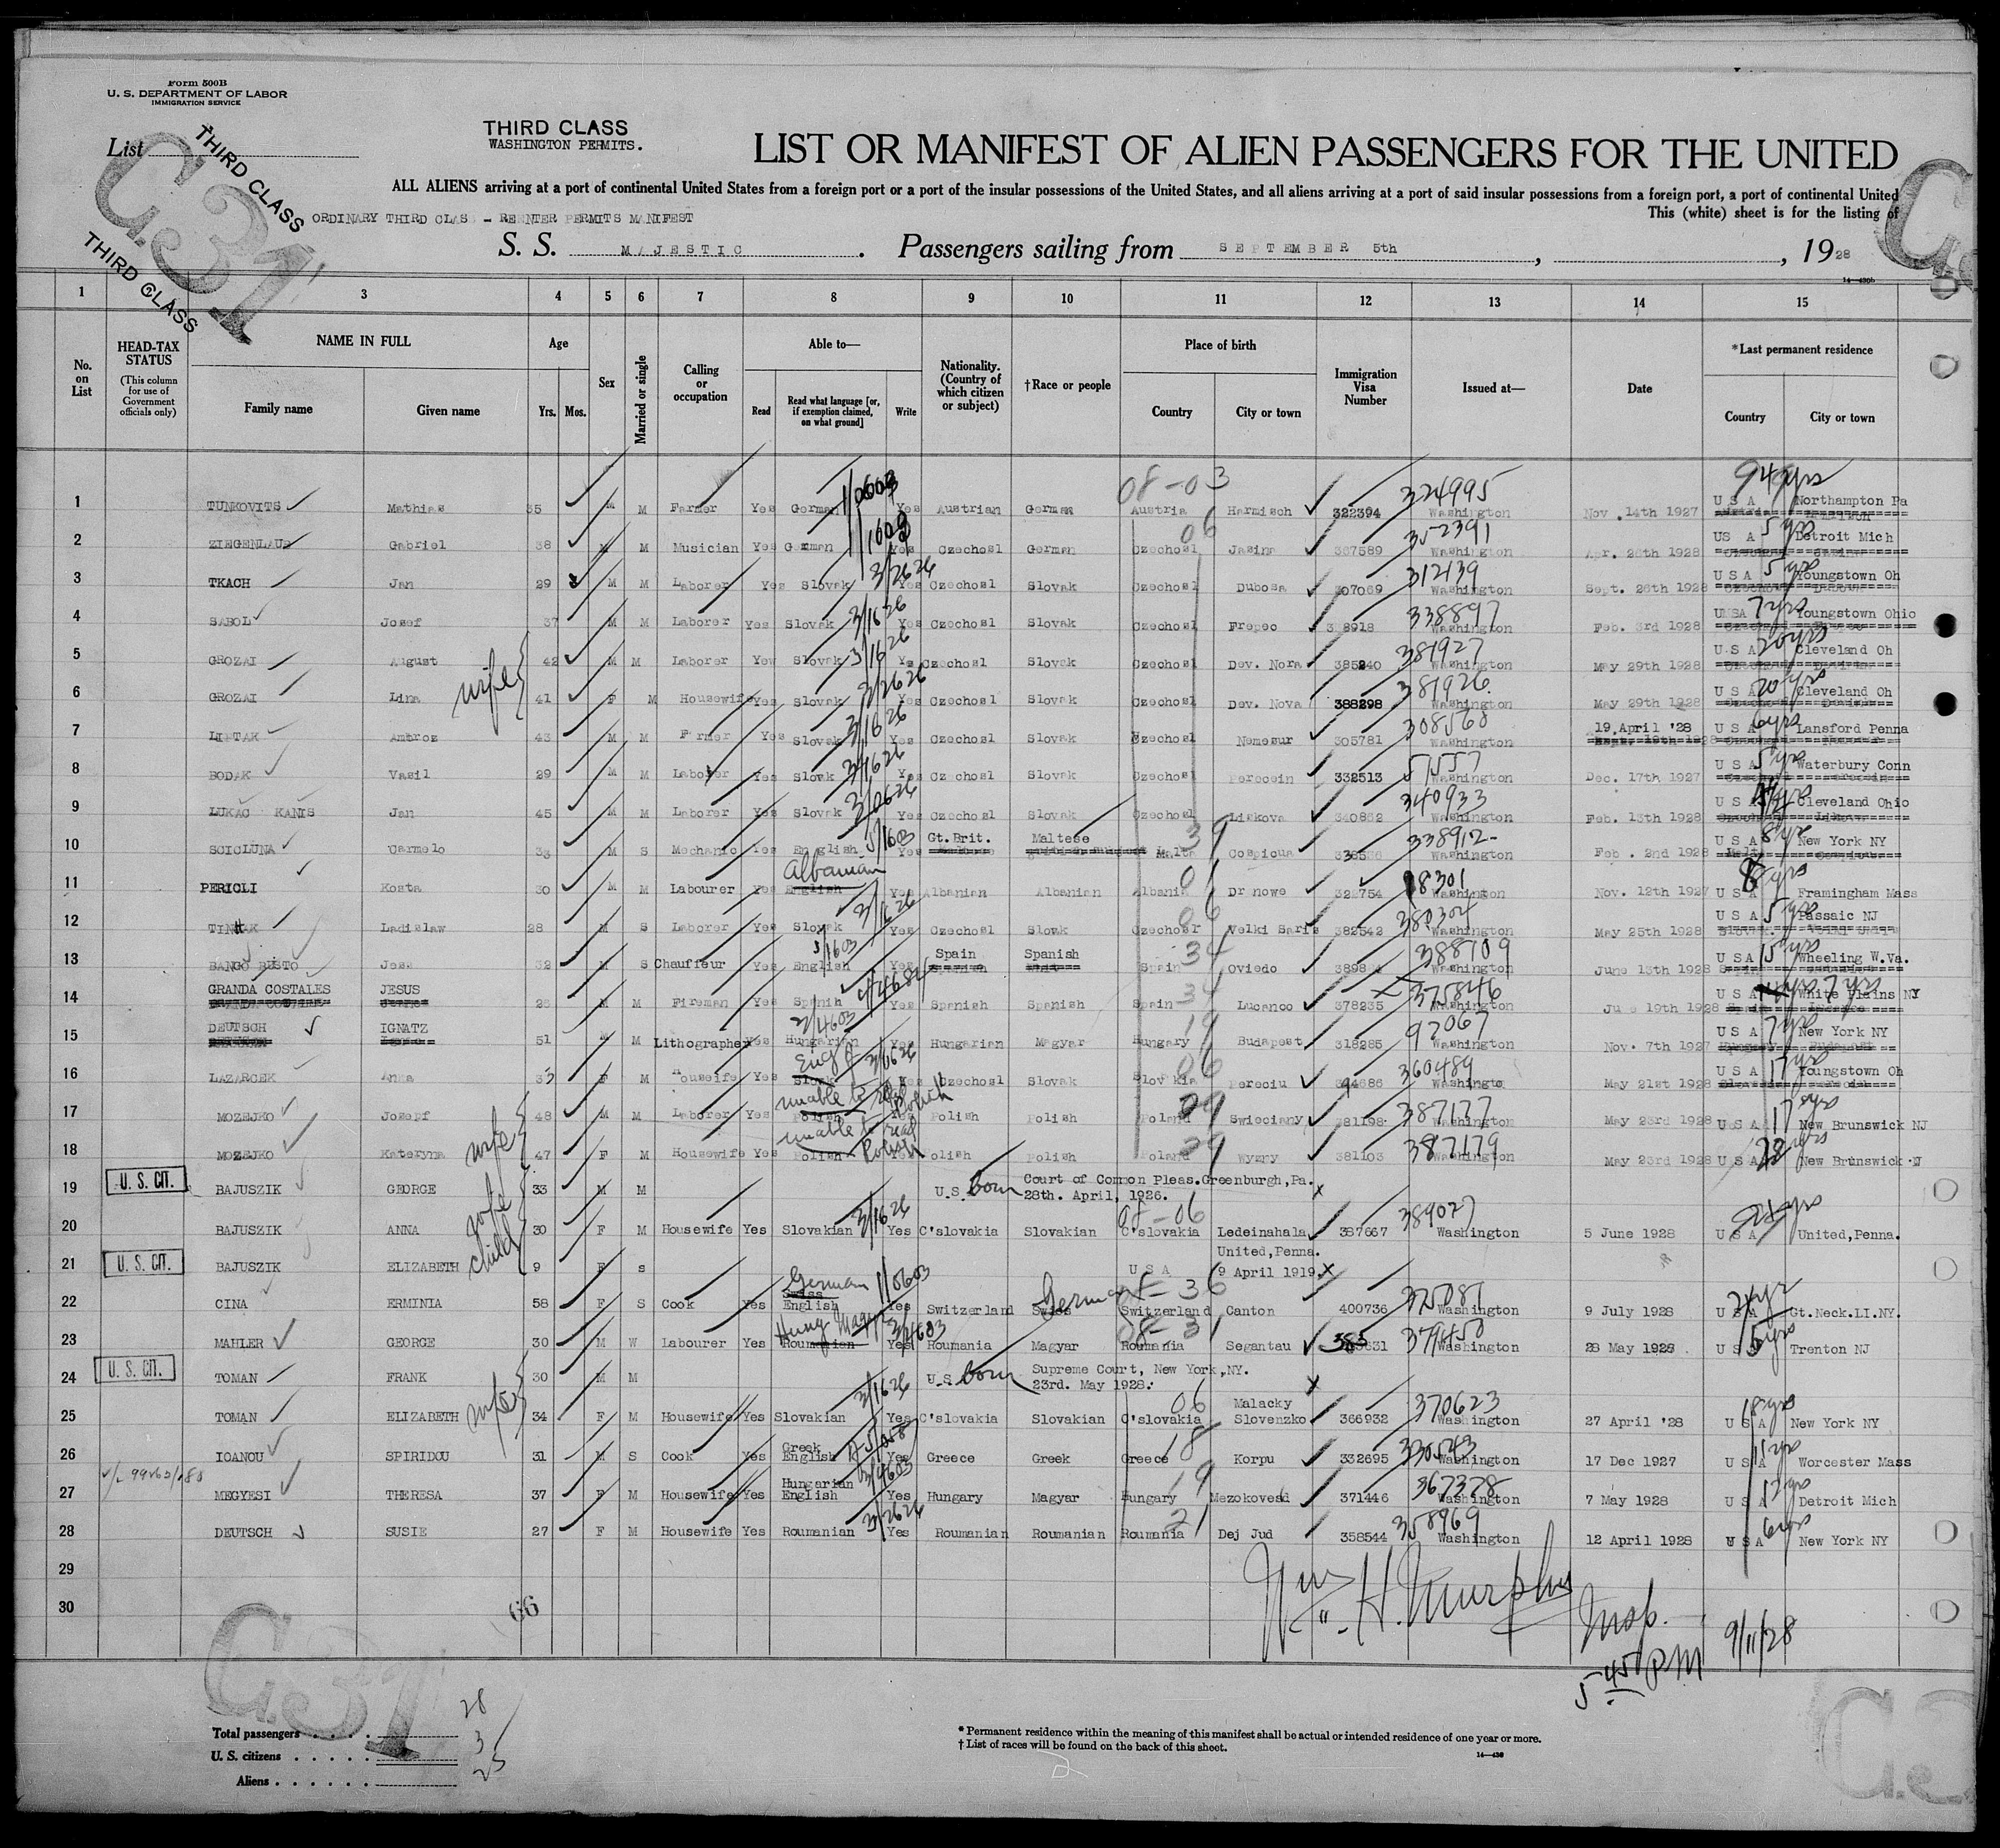 Form 500B
U. S. DEPARTMENT OF LABOR
IMMIGRATION SERVICE
List
THIRD CLASS
THIRD CLASS
C.31
THIRD CLASS
WASHINGTON PERMITS.
LIST OR MANIFEST OF ALIEN PASSENGERS FOR THE UNITED
ALL ALIENS arriving at a port of continental United States from a foreign port or a port of the insular possessions of the United States, and all aliens arriving at a port of said insular possessions from a foreign port, a port of continental United
This (white) sheet is for the listing of
ORDINARY THIRD CLASS - REENTER PERMITS MANIFEST
S. S. MAJESTIC. Passengers sailing from SEPTEMBER 5th, , 1928
14-430b
1 2 3 4 5 6 7 8 9 10 11 12 13 14 15
No. on List
HEAD-TAX STATUS
(This column for use of Government officials only)
NAME IN FULL
Family name Given name
Age
Yrs. Mos.
Sex
Married or single
Calling or occupation
Able to—
Read Read what language [or, if exemption claimed, on what ground] Write
Nationality. (Country of which citizen or subject)
†Race or people
Place of birth
Country City or town
Immigration Visa Number
Issued at—
Date
*Last permanent residence
Country City or town
1 TUNKOVITS Mathias 35 M M Farmer Yes German Yes Austrian German Austria Harmisch 322394 324995 Washington Nov. 14th 1927 U S A Northampton Pa
2 ZIEGENLAUB Gabriel 38 M M Musician Yes German Yes Czechosl German Czechosl Jasina 367589 352391 Washington Apr. 26th 1928 US A 5 yrs Detroit Mich
3 TKACH Jan 29 M M Laborer Yes Slovak 3/2626 Yes Czechosl Slovak Czechosl Dubosa 307069 312139 Washington Sept. 26th 1928 U S A 5 yrs Youngstown Oh
4 SABOL Josef 37 M M Laborer Yes Slovak 3/1626 Yes Czechosl Slovak Czechosl Frepec 338897 Washington Feb. 3rd 1928 U S A 7 yrs Youngstown Ohio
5 GROZAI August 42 M M Laborer Yes Slovak 3/1626 Yes Czechosl Slovak Czechosl Dev. Nora 385240 381927 Washington May 29th 1928 U S A 20 yrs Cleveland Oh
6 GROZAI Lina wife 41 F M Housewife Yes Slovak 3/2626 Yes Czechosl Slovak Czechosl Dev. Nova 388298 381926 Washington May 29th 1928 U S A 20 yrs Cleveland Oh
7 LIPTAK Ambroz 43 M M Farmer Yes Slovak 3/1626 Yes Czechosl Slovak Czechosl Nemesur 305781 308568 Washington 19.April '28 U S A 6 yrs Lansford Penna
8 BODAK Vasil 29 M M Laborer Yes Slovk 3/1626 Yes Czechosl Slovak Czechosl Perecein 332513 51557 Washington Dec. 17th 1927 U S A 5 yrs Waterbury Conn
9 LUKAC KANIS Jan 45 M M Laborer Yes Slovak 3/0626 Yes Czechosl Slovak Czechosl Liskova 340862 340933 Washington Feb. 13th 1928 U S A Cleveland Ohio
10 SCICLUNA Carmelo 33 M S Mechanic Yes English 5/1603 Yes Gt.Brit. Maltese Malta Cospicua 338912 Washington Feb. 2nd 1928 U S A 8 yrs New York NY
11 PERICLI Kosta 30 M M Labourer Yes Albanian English Yes Albanian Albanian Albania Dr nowe 322754 18301 Washington Nov. 12th 1927 U S A 8 yrs Framingham Mass
12 TINAK Ladislaw 28 M S Laborer Yes Slovak 3/1626 Yes Czechosl Slovk Czechosr Velki Saris 382542 380304 Washington May 25th 1928 U S A 5 yrs Passaic NJ
13 BANGO BUSTO Jess 32 M S Chauffeur Yes English 5/1603 Yes Spain Spanish Spain Oviedo 388109 Washington June 13th 1928 U S A 15 yrs Wheeling W.Va.
14 GRANDA COSTALES JESUS 26 M M Fireman Yes Spanih Yes Spanish Spanish Spain Lucanco 378235 375846 Washington June 19th 1928 U S A 7 yrs White Plains NY
15 DEUTSCH IGNATZ 51 M M Lithographer Yes Hungarian 3/4603 Yes Hungarian Magyar Hungary Budapest 318285 97067 Washington Nov. 7th 1927 U S A 7 yrs New York NY
16 LAZARCEK Anna 33 F M Housewife Yes Eng Slovak 3/0626 Yes Czechosl Slovak Slovakia Pereciu 360489 Washington May 21st 1928 U S A Youngstown Oh
17 MOZEJKO Jozepf 48 M M Laborer Yes unable to read Polish Polish Polish Polish Poland Swieciany 381198 387177 Washington May 23rd 1928 U S A 17 yrs New Brunswick NJ
18 MOZEJKO Kateryna wife 47 F M Housewife Yes unable to read Polish Polish Polish Polish Poland Wyzny 381103 387179 Washington May 23rd 1928 U S A New Brunswick NJ
19 U. S. CIT. BAJUSZIK GEORGE 33 M M U.S. born Court of Common Pleas.Greenburgh,Pa. 28th. April, 1926. x
20 BAJUSZIK ANNA wife 30 F M Housewife Yes Slovakian 3/1626 Yes C'slovakia Slovakian C'slovakia Ledeinahala 387667 389077 Washington 5 June 1928 U S A United,Penna.
21 U. S. CIT. BAJUSZIK ELIZABETH child 9 F s U S A United,Penna. 9 April 1919. x
22 CINA ERMINIA 58 F S Cook Yes German Swiss English 1/0603 Yes Switzerland German Swiss Switzerland Canton 400736 375087 Washington 9 July 1928 U S A Gt.Neck.LI.NY.
23 MAHLER GEORGE 30 M W Labourer Yes Hung Magyar Roumanian 3/4603 Yes Roumania Magyar Roumania Segantau 379450 Washington 28 May 1928 U S A 5 yrs Trenton NJ
24 U. S. CIT. TOMAN FRANK 30 M M U.S. born Supreme Court, New York,NY. 23rd. May 1928. x
25 TOMAN ELIZABETH wife 34 F M Housewife Yes Slovakian 3/1626 Yes C'slovakia Slovakian C'slovakia Malacky Slovenzko 366932 370623 Washington 27 April '28 U S A New York NY
26 IOANOU SPIRIDOU 31 M S Cook Yes Greek English Yes Greece Greek Greece Korpu 332695 330543 Washington 17 Dec 1927 U S A Worcester Mass
27 MEGYESI THERESA 37 F M Housewife Yes Hungarian English 3/4603 Yes Hungary Magyar Hungary Mezokovesd 371446 367378 Washington 7 May 1928 U S A Detroit Mich
28 DEUTSCH SUSIE 27 F M Housewife Yes Roumanian 3/2626 Yes Roumanian Roumanian Roumania Dej Jud 358544 358969 Washington 12 April 1928 U S A 6 yrs New York NY
29
30
66
Wm. H. Murphy
Insp.
5.45 PM
9/11/28
C.31
Total passengers 28
U. S. citizens 3
Aliens 25
* Permanent residence within the meaning of this manifest shall be actual or intended residence of one year or more.
† List of races will be found on the back of this sheet.
14-430
2